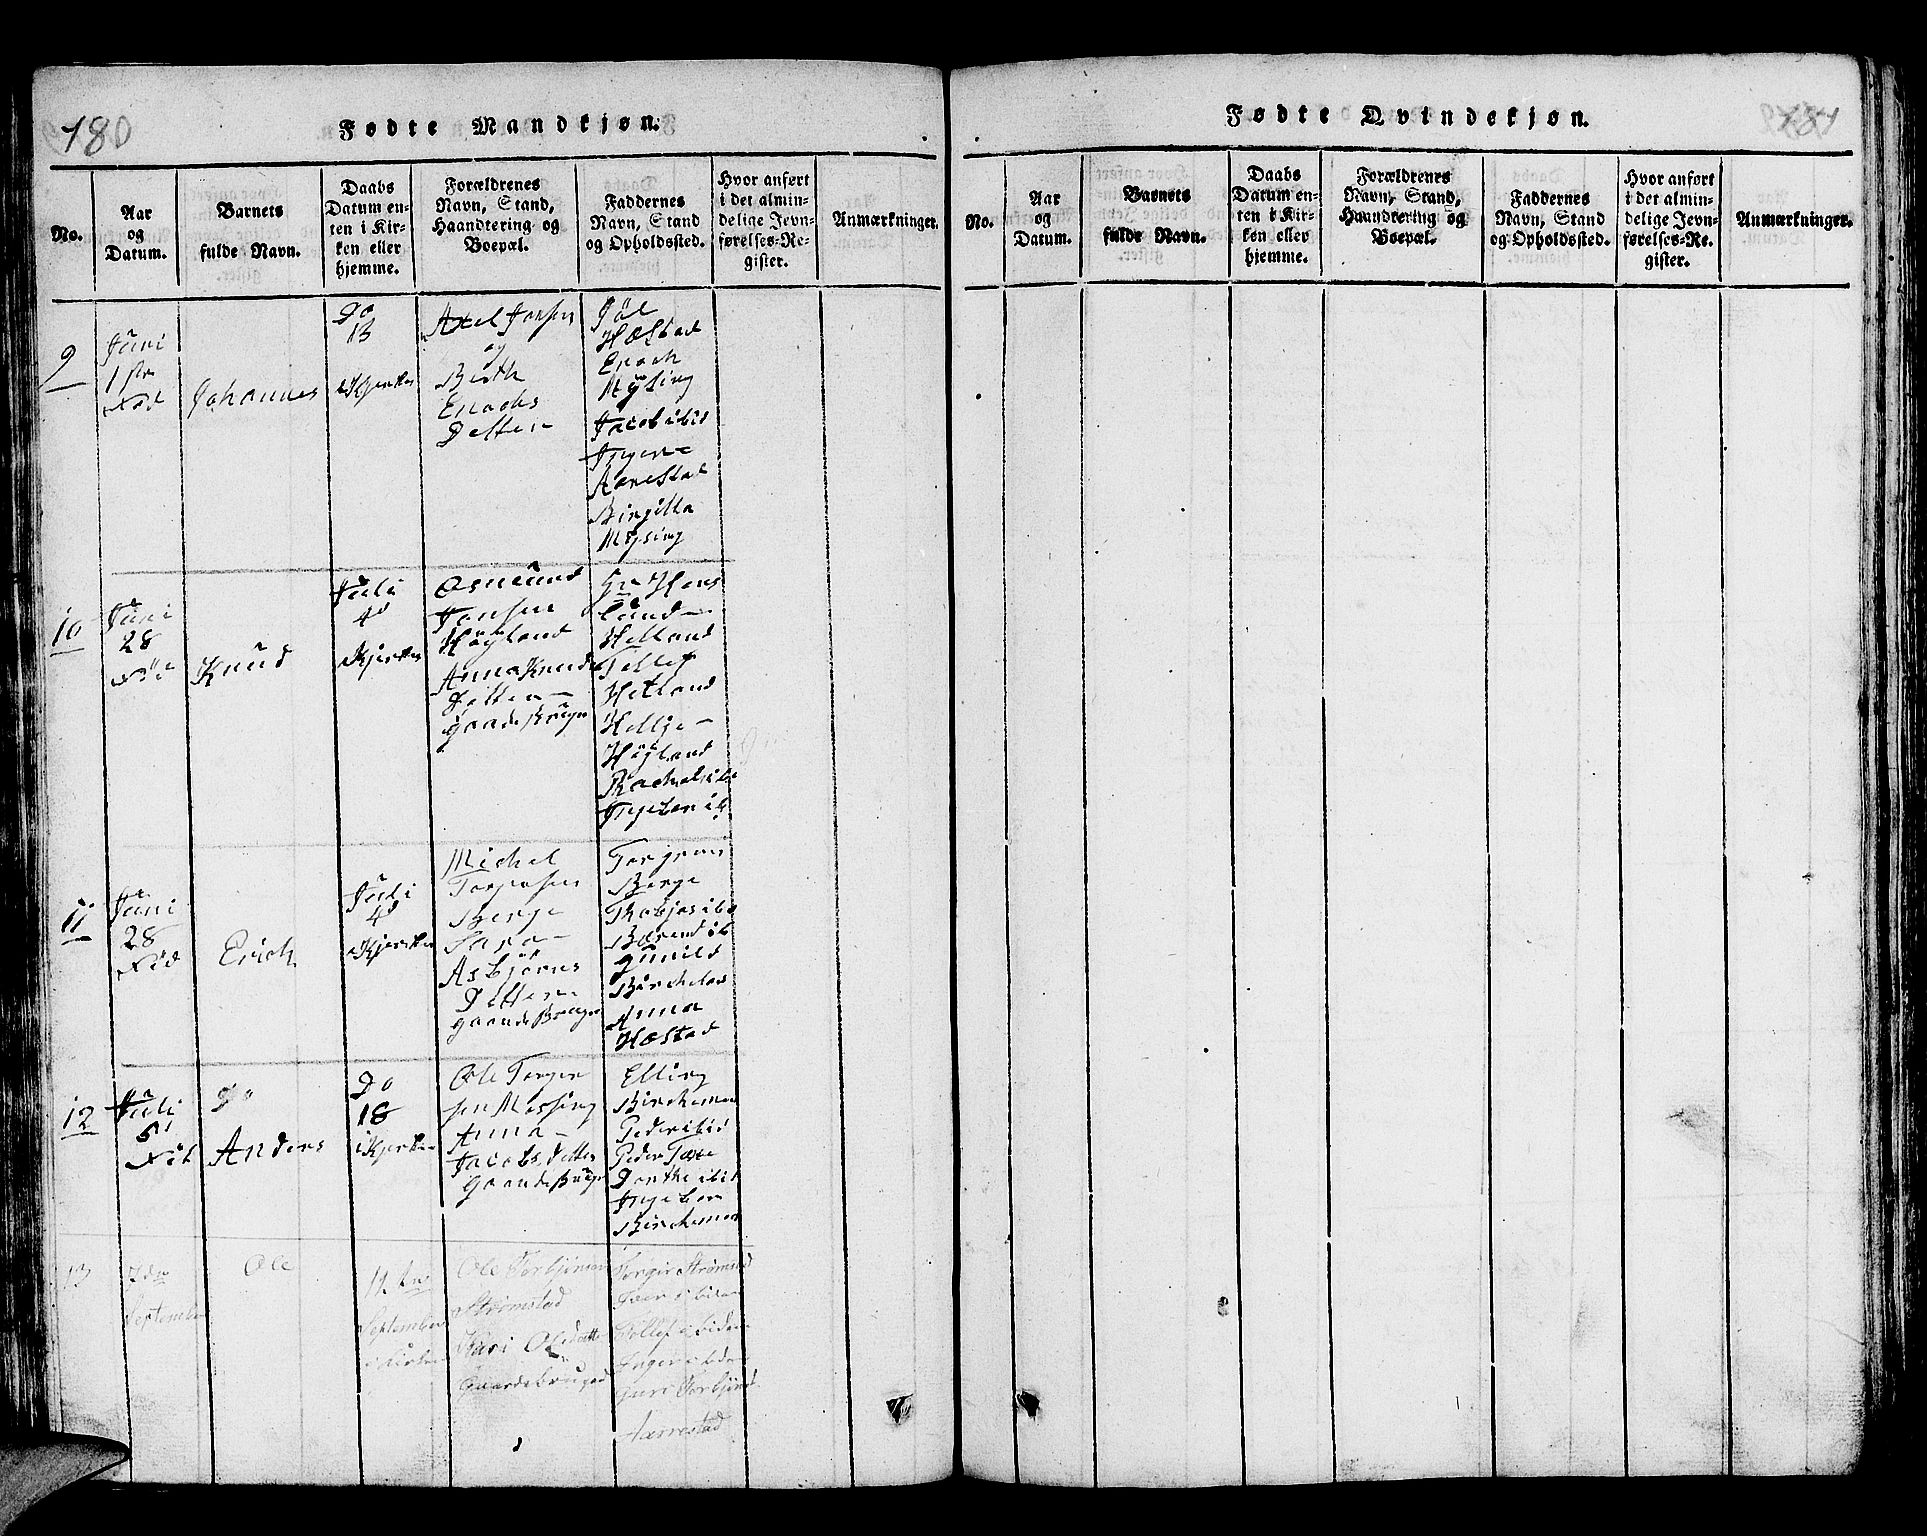 180
Fødte Mandkjøn.
No.
Aar
og
Datum.
Barnets
fulde Navn.
Daabs
Datum en-
ten i Kir-
ken eller
hjemme.
Forældrenes
Navn, Stand,
Haandtering og
Boepæl.
Faddernes
Navn, Stand
og Opholdssted.
Hvor anført
i det almin-
delige Jevn-
førelses-Re-
gister.
Anmærkninger.
9
Juni
1ste
Fød
Johannes
Do
13
i Kjerken
Axel Jonsen
og
Berth
Enochs
Dotter
Joel
Hæstad
Enoch
Mysing
Jacob ibid
Inger
Aarestad
Birgitta
Mysing
10
Juni
28
Fød
Knud
Juli
4d
i Kjerken
Osmund
Jonsen
Høyland
Anna Knuds
Dotter
Gaardebruger
Lund
Helland
Tollef
Hetland
Helije
Høyland
Rachel ibi
Ingebor ib
11
Juni
28
Fød
Erich
Juli
4d
i Kjerken
Michel
Torgersen
Berge
Sara
Asbjørns
Dotter
Gaardebruger
Torgrim
Berge
Thobjør ibi
Berend ib
Gunild
Birchelan
Anna
Hæstad
12
Juli
5
Fød
Do
Anders
Do
18
i Kjerken
Ole Torger
sen Messing
Anna
Jacobs Dotter
Gaardebruger
Elling
Birchemoe
Peder ibid
Peder Taxe
Dorthe ibid
Ingebor
Birchemoe
13
7de
September
Ole
12te
September
i Kirken
Ole Torbjørnsen
Strømstad
Kari Olsdatter
Gaardebruger
Torgir Strømstad
Iver ibidem
Tollef ibidem
Inger ibidem
Guri Torbjørnsd
Aarrestad
181
Fødte Qvindekjøn.
No.
Aar
og
Datum.
Barnets
fulde Navn.
Daabs
Datum en-
ten i Kir-
ken eller
hjemme.
Forældrenes
Navn, Stand,
Haandtering og
Boepæl.
Faddernes
Navn, Stand
og Opholdssted.
Hvor anført
i det almin-
delige Jevn-
førelses-Re-
gister.
Anmærkninger.